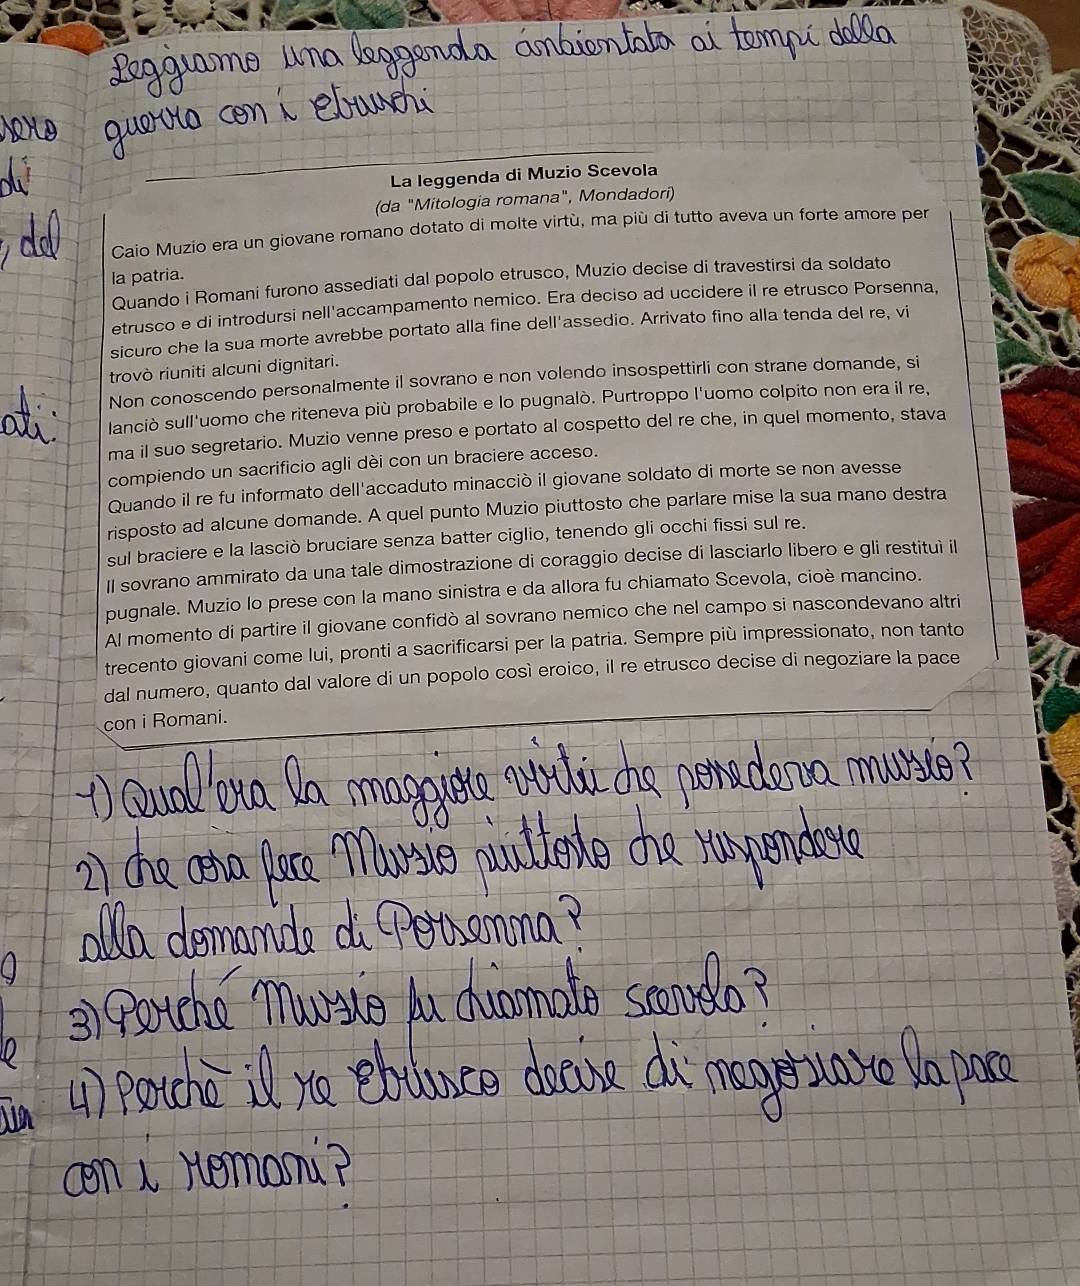 Leggiamo una leggenda ambientata ai tempi della
guerra con i etruschi
La leggenda di Muzio Scevola
(da "Mitologia romana", Mondadori)
Caio Muzio era un giovane romano dotato di molte virtù, ma più di tutto aveva un forte amore per
la patria.
Quando i Romani furono assediati dal popolo etrusco, Muzio decise di travestirsi da soldato
etrusco e di introdursi nell'accampamento nemico. Era deciso ad uccidere il re etrusco Porsenna,
sicuro che la sua morte avrebbe portato alla fine dell'assedio. Arrivato fino alla tenda del re, vi
trovò riuniti alcuni dignitari.
Non conoscendo personalmente il sovrano e non volendo insospettirli con strane domande, si
lanciò sull'uomo che riteneva più probabile e lo pugnalò. Purtroppo l'uomo colpito non era il re,
ma il suo segretario. Muzio venne preso e portato al cospetto del re che, in quel momento, stava
compiendo un sacrificio agli dèi con un braciere acceso.
Quando il re fu informato dell'accaduto minacciò il giovane soldato di morte se non avesse
risposto ad alcune domande. A quel punto Muzio piuttosto che parlare mise la sua mano destra
sul braciere e la lasciò bruciare senza batter ciglio, tenendo gli occhi fissi sul re.
Il sovrano ammirato da una tale dimostrazione di coraggio decise di lasciarlo libero e gli restituì il
pugnale. Muzio lo prese con la mano sinistra e da allora fu chiamato Scevola, cioè mancino.
Al momento di partire il giovane confidò al sovrano nemico che nel campo si nascondevano altri
trecento giovani come lui, pronti a sacrificarsi per la patria. Sempre più impressionato, non tanto
dal numero, quanto dal valore di un popolo così eroico, il re etrusco decise di negoziare la pace
con i Romani.
1) Qual'era la maggiore virtù che possedeva muzio?
2) che cosa fece Muzio piuttosto che rispondere
alla domande di Porsenna?
3) Perché Muzio fu chiamato scevola?
4) Perchè il re etrusco decise di negoziare la pace
con i romani?
di
, del
ati: